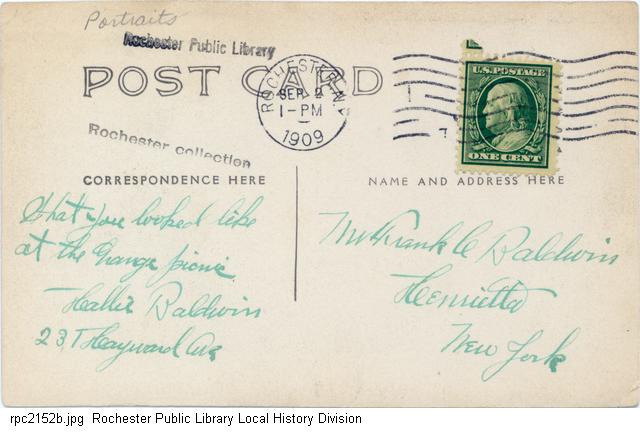 Portraits
Rochester Public Library
POST CARD
ROCHESTER, N.Y.
SEP 2
1-PM
1909
U.S. POSTAGE
ONE CENT
Rochester collection
CORRESPONDENCE HERE
What you looked like
at the Grange picnic
Hallie Baldwin
23 Hayward Ave
NAME AND ADDRESS HERE
Mr Frank C Baldwin
Henrietta
New York
rpc2152b.jpg Rochester Public Library Local History Division